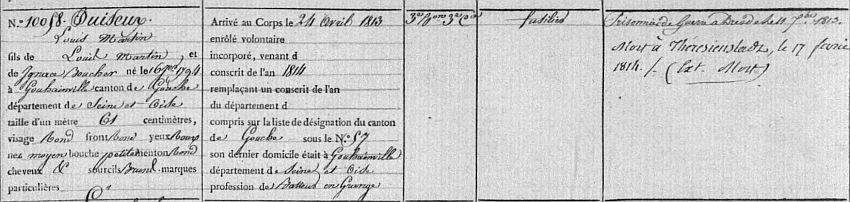 N.º 10058. Ouiseux.
Louis Martin
fils de Louis Martin et
de Ignace Boucher né le 16 9bre 1794
à Gouhainville canton de Gouche
département de Seine et Oise
taille d'un mètre 61 centimètres,
visage Rond front Rond yeux Roux
nez moyen bouche petite menton Rond
cheveux & sourcils Brund. marques
particulières
Arrivé au Corps le 24 Avril 1813
enrôlé volontaire
incorporé, venant d
conscrit de l'an 1814
remplaçant un conscrit de l'an
du département d
compris sur la liste de désignation du canton
de Gouche sous le N.º 57
son dernier domicile était à Gouhainville
département de Seine et Oise
profession de Batteur en Grange
3e Bon 3e Cie
fusilier
Prisonnier de Guerre à Dresde le 11 9bre 1813.
Mort à Thérésienstadt, le 17 fevrier
1814. /. (Ext. Mort)